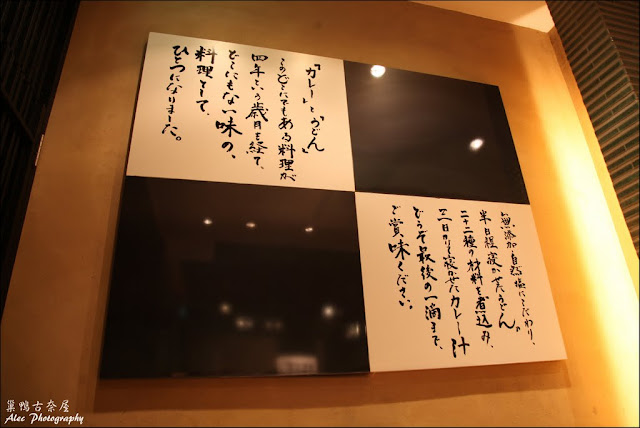 「カレー」と「うどん」
このどこにでもある料理が
四年という歳月を経て、
どこにもない味の、
料理として、
ひとつになりました。
無添加自然塩にこだわり、
半日程寝かせたうどん。
二十二種の材料を煮込み、
三日かけ寝かせたカレー汁
どうぞ最後の一滴まで、
ご賞味ください。
巣鴨古奈屋
Alec Photography